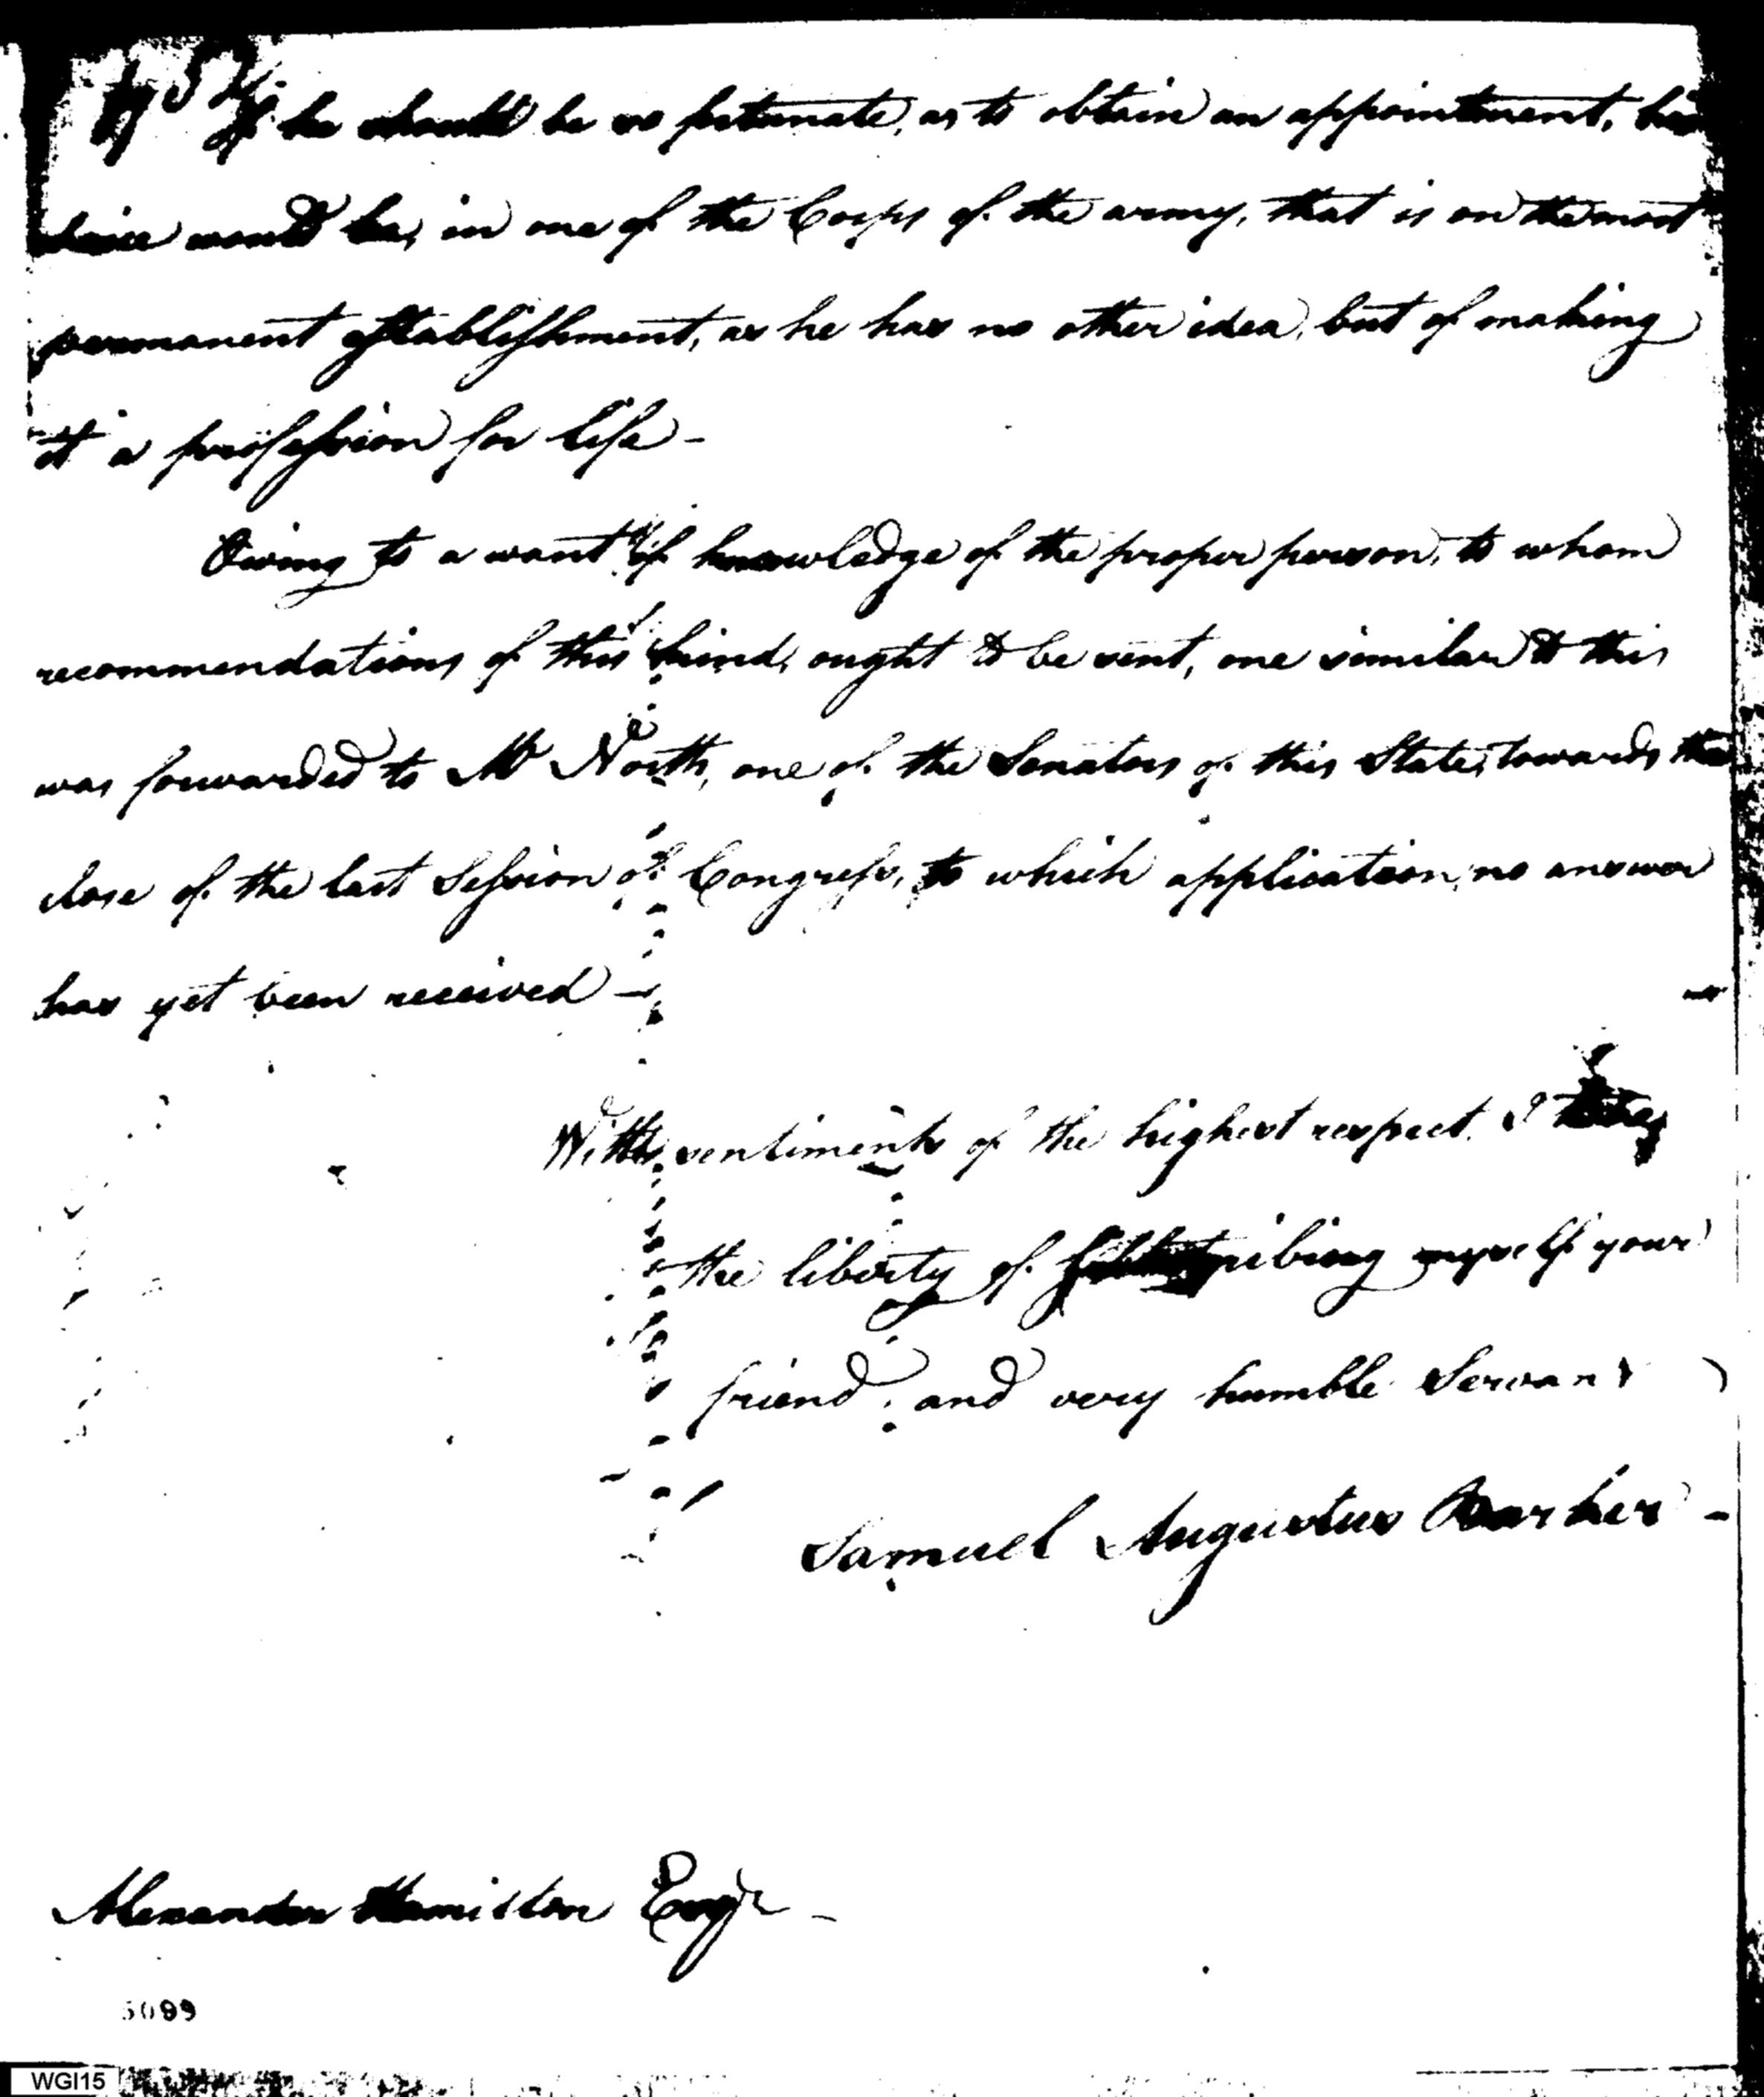 If he should be so fortunate, as to obtain an appointment, his
choice would be, in one of the Corps of the army, that is on the most
permanent establishment, as he has no other idea, but of making
it a profession for life -
Owing to a want of knowledge of the proper person, to whom
recommendations of this kind, ought to be sent, one similar to this
was forwarded to Mr North, one of the Senators of this State, towards the
close of the last Session of Congress, to which application, no answer
has yet been received -
With sentiments of the highest respect, I take
the liberty of subscribing myself your
friend, and very humble Servant
Samuel Augustus Barker -
Alexander Hamilton Esqr -
5099
WGI15